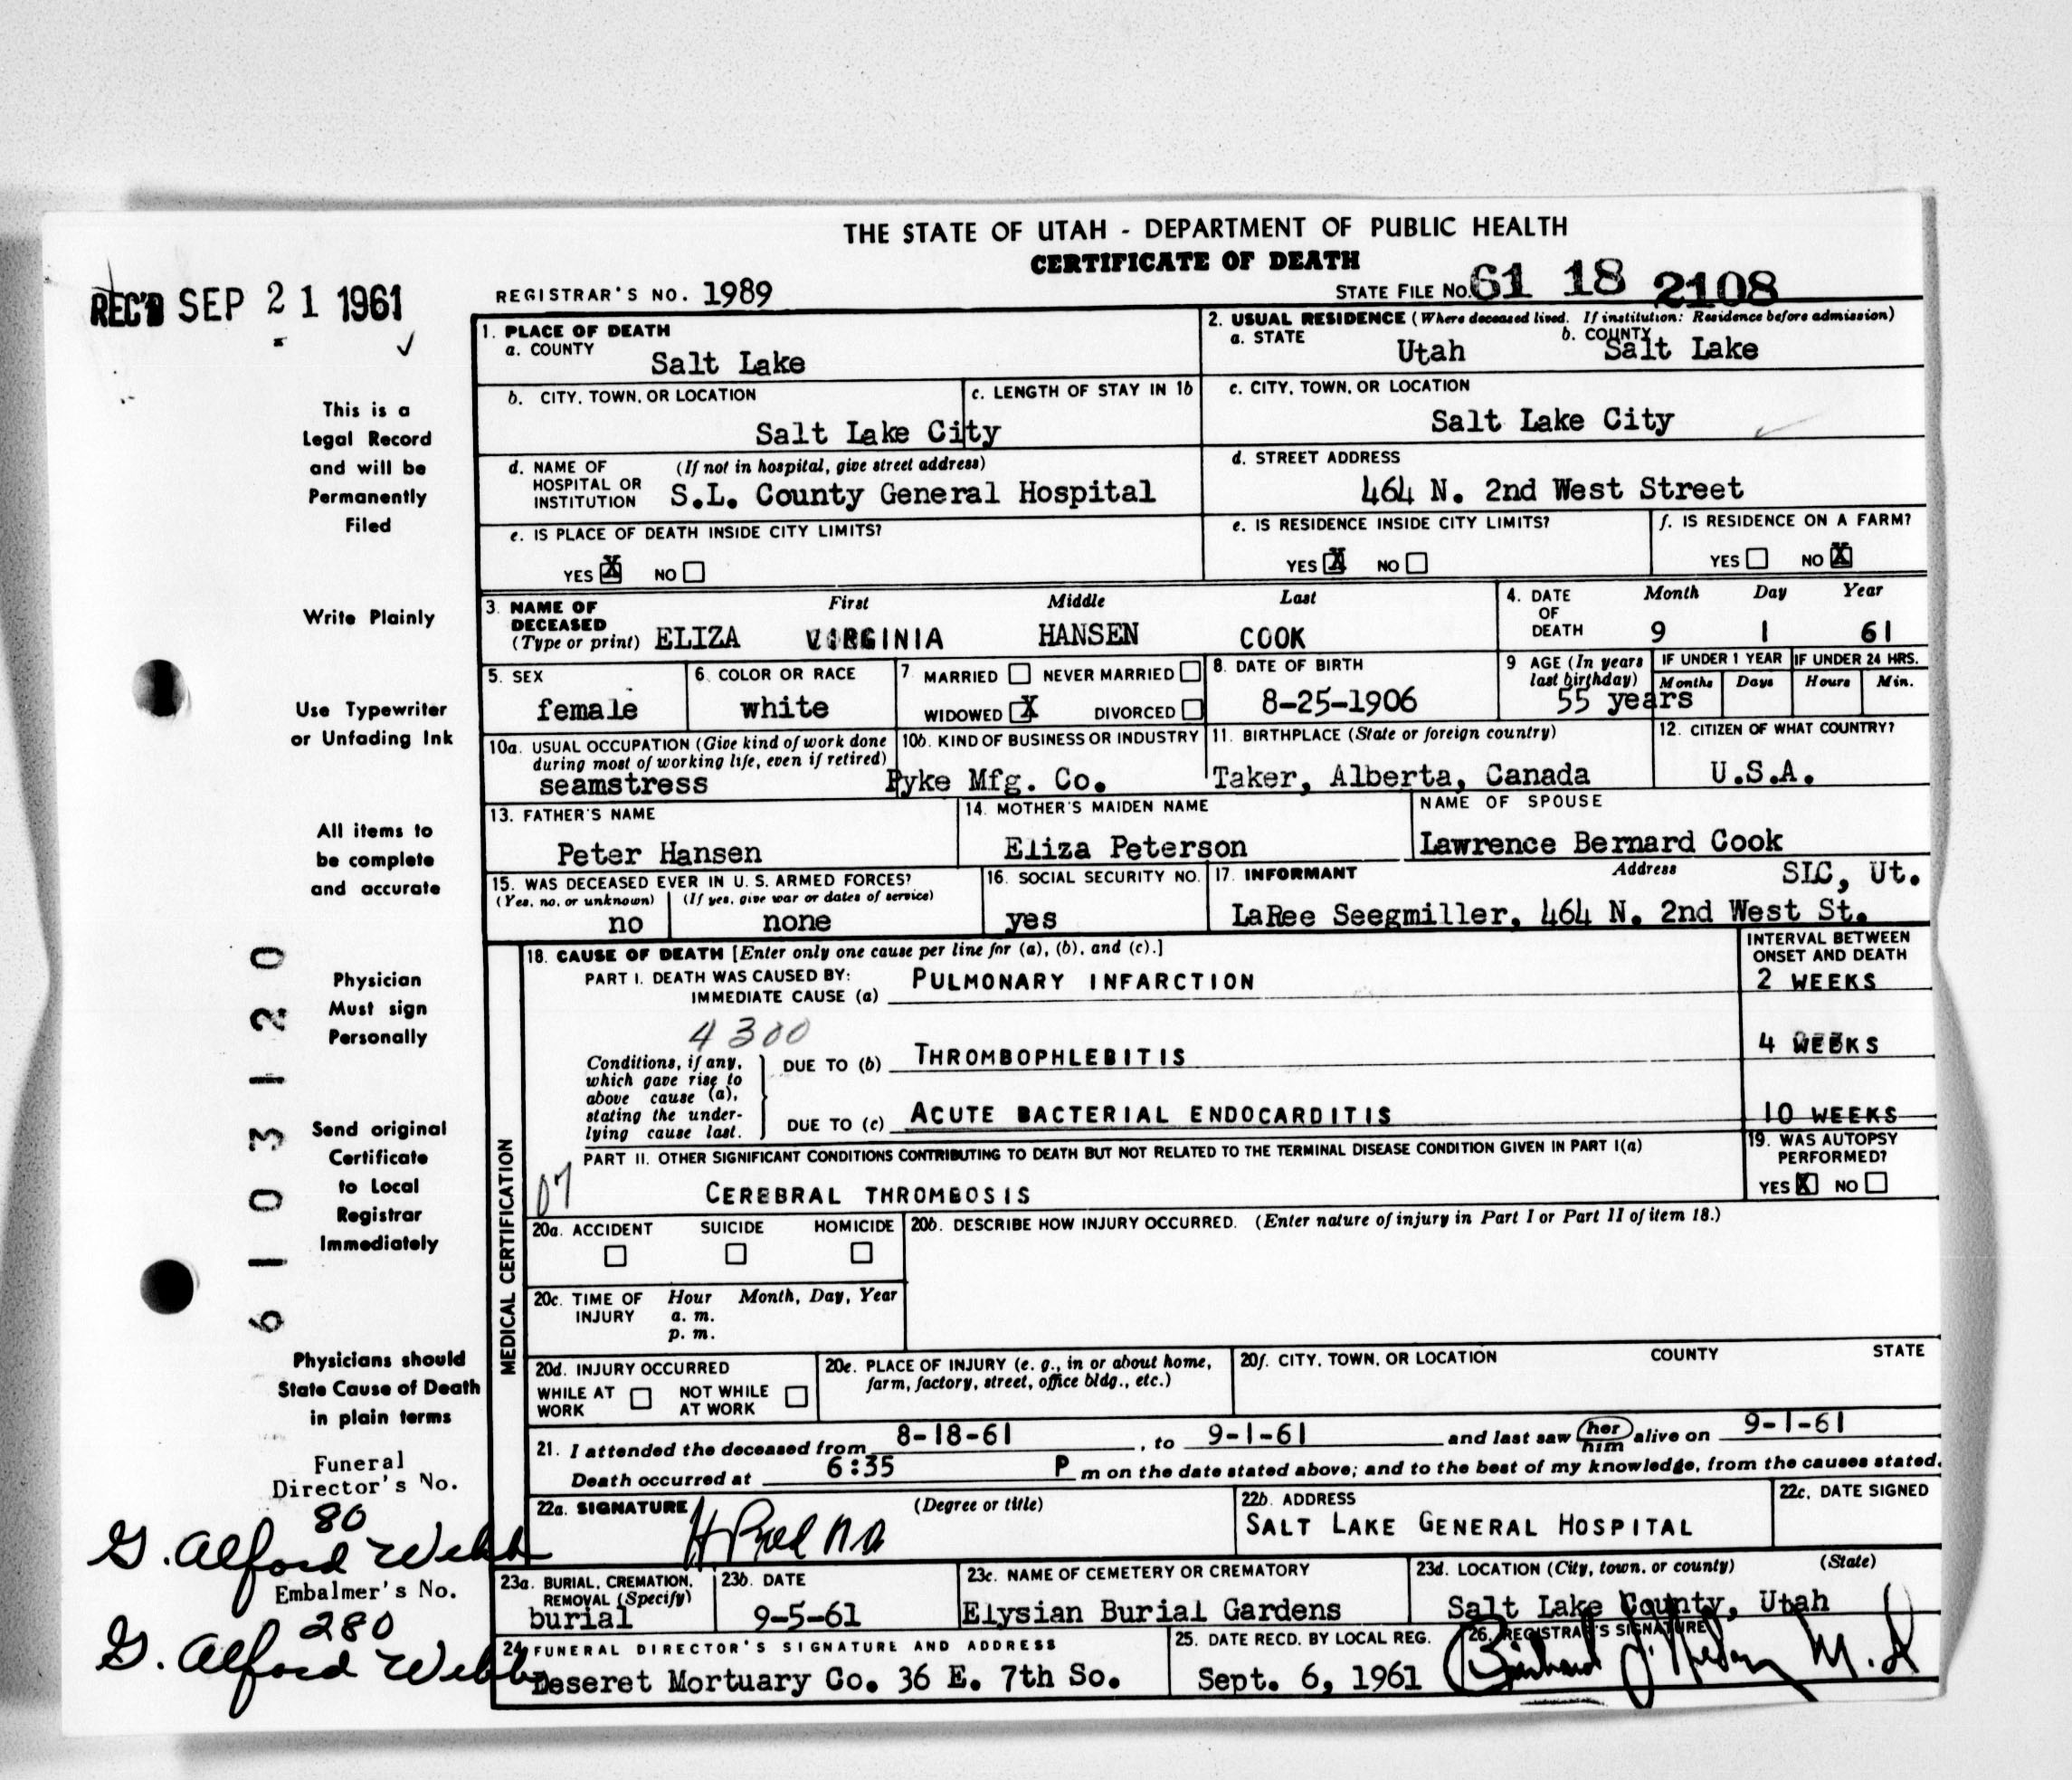 THE STATE OF UTAH - DEPARTMENT OF PUBLIC HEALTH
CERTIFICATE OF DEATH
REC'D SEP 21 1961
REGISTRAR'S NO. 1989
STATE FILE NO. 61 18 2108
1. PLACE OF DEATH
a. COUNTY Salt Lake
2. USUAL RESIDENCE (Where deceased lived. If institution: Residence before admission)
a. STATE Utah b. COUNTY Salt Lake
b. CITY, TOWN, OR LOCATION Salt Lake City
c. LENGTH OF STAY IN 1b
c. CITY, TOWN, OR LOCATION Salt Lake City
d. NAME OF HOSPITAL OR INSTITUTION (If not in hospital, give street address) S.L. County General Hospital
d. STREET ADDRESS 464 N. 2nd West Street
e. IS PLACE OF DEATH INSIDE CITY LIMITS?
YES X NO
e. IS RESIDENCE INSIDE CITY LIMITS?
YES X NO
f. IS RESIDENCE ON A FARM?
YES NO X
3. NAME OF DECEASED (Type or print) First Middle Last
ELIZA VIRGINIA HANSEN COOK
4. DATE OF DEATH Month Day Year
9 1 61
5. SEX female
6. COLOR OR RACE white
7 MARRIED NEVER MARRIED
WIDOWED X DIVORCED
8. DATE OF BIRTH 8-25-1906
9 AGE (In years last birthday) 55 years
IF UNDER 1 YEAR Months Days
IF UNDER 24 HRS. Hours Min.
10a. USUAL OCCUPATION (Give kind of work done during most of working life, even if retired) seamstress
10b. KIND OF BUSINESS OR INDUSTRY Pyke Mfg. Co.
11. BIRTHPLACE (State or foreign country) Taker, Alberta, Canada
12. CITIZEN OF WHAT COUNTRY? U.S.A.
13. FATHER'S NAME Peter Hansen
14. MOTHER'S MAIDEN NAME Eliza Peterson
NAME OF SPOUSE Lawrence Bernard Cook
15. WAS DECEASED EVER IN U. S. ARMED FORCES?
(Yes, no, or unknown) (If yes, give war or dates of service)
no none
16. SOCIAL SECURITY NO. yes
17. INFORMANT Address SLC, Ut.
LaRee Seegmiller, 464 N. 2nd West St.
MEDICAL CERTIFICATION
18. CAUSE OF DEATH [Enter only one cause per line for (a), (b), and (c).]
INTERVAL BETWEEN ONSET AND DEATH
PART I. DEATH WAS CAUSED BY:
IMMEDIATE CAUSE (a) PULMONARY INFARCTION 2 WEEKS
4300
Conditions, if any, which gave rise to above cause (a), stating the underlying cause last.
DUE TO (b) THROMBOPHLEBITIS 4 WEEKS
DUE TO (c) ACUTE BACTERIAL ENDOCARDITIS 10 WEEKS
PART II. OTHER SIGNIFICANT CONDITIONS CONTRIBUTING TO DEATH BUT NOT RELATED TO THE TERMINAL DISEASE CONDITION GIVEN IN PART I(a)
07 CEREBRAL THROMBOSIS
19. WAS AUTOPSY PERFORMED?
YES X NO
20a. ACCIDENT SUICIDE HOMICIDE
20b. DESCRIBE HOW INJURY OCCURRED. (Enter nature of injury in Part I or Part II of item 18.)
20c. TIME OF INJURY Hour Month, Day, Year
a. m.
p. m.
20d. INJURY OCCURRED
WHILE AT WORK NOT WHILE AT WORK
20e. PLACE OF INJURY (e. g., in or about home, farm, factory, street, office bldg., etc.)
20f. CITY, TOWN, OR LOCATION COUNTY STATE
21. I attended the deceased from 8-18-61, to 9-1-61 and last saw her him alive on 9-1-61
Death occurred at 6:35 P m on the date stated above; and to the best of my knowledge, from the causes stated.
22a. SIGNATURE (Degree or title)
22b. ADDRESS SALT LAKE GENERAL HOSPITAL
22c. DATE SIGNED
23a. BURIAL, CREMATION, REMOVAL (Specify) burial
23b. DATE 9-5-61
23c. NAME OF CEMETERY OR CREMATORY Elysian Burial Gardens
23d. LOCATION (City, town, or county) (State) Salt Lake County, Utah
24 FUNERAL DIRECTOR'S SIGNATURE AND ADDRESS
Deseret Mortuary Co. 36 E. 7th So.
25. DATE RECD. BY LOCAL REG. Sept. 6, 1961
26. REGISTRAR'S SIGNATURE
M.D
This is a
Legal Record
and will be
Permanently
Filed
Write Plainly
Use Typewriter
or Unfading Ink
All items to
be complete
and accurate
Physician
Must sign
Personally
Send original
Certificate
to Local
Registrar
Immediately
Physicians should
State Cause of Death
in plain terms
Funeral
Director's No.
80
G. Alford Webb
Embalmer's No.
280
G. Alford Webb
61 03120